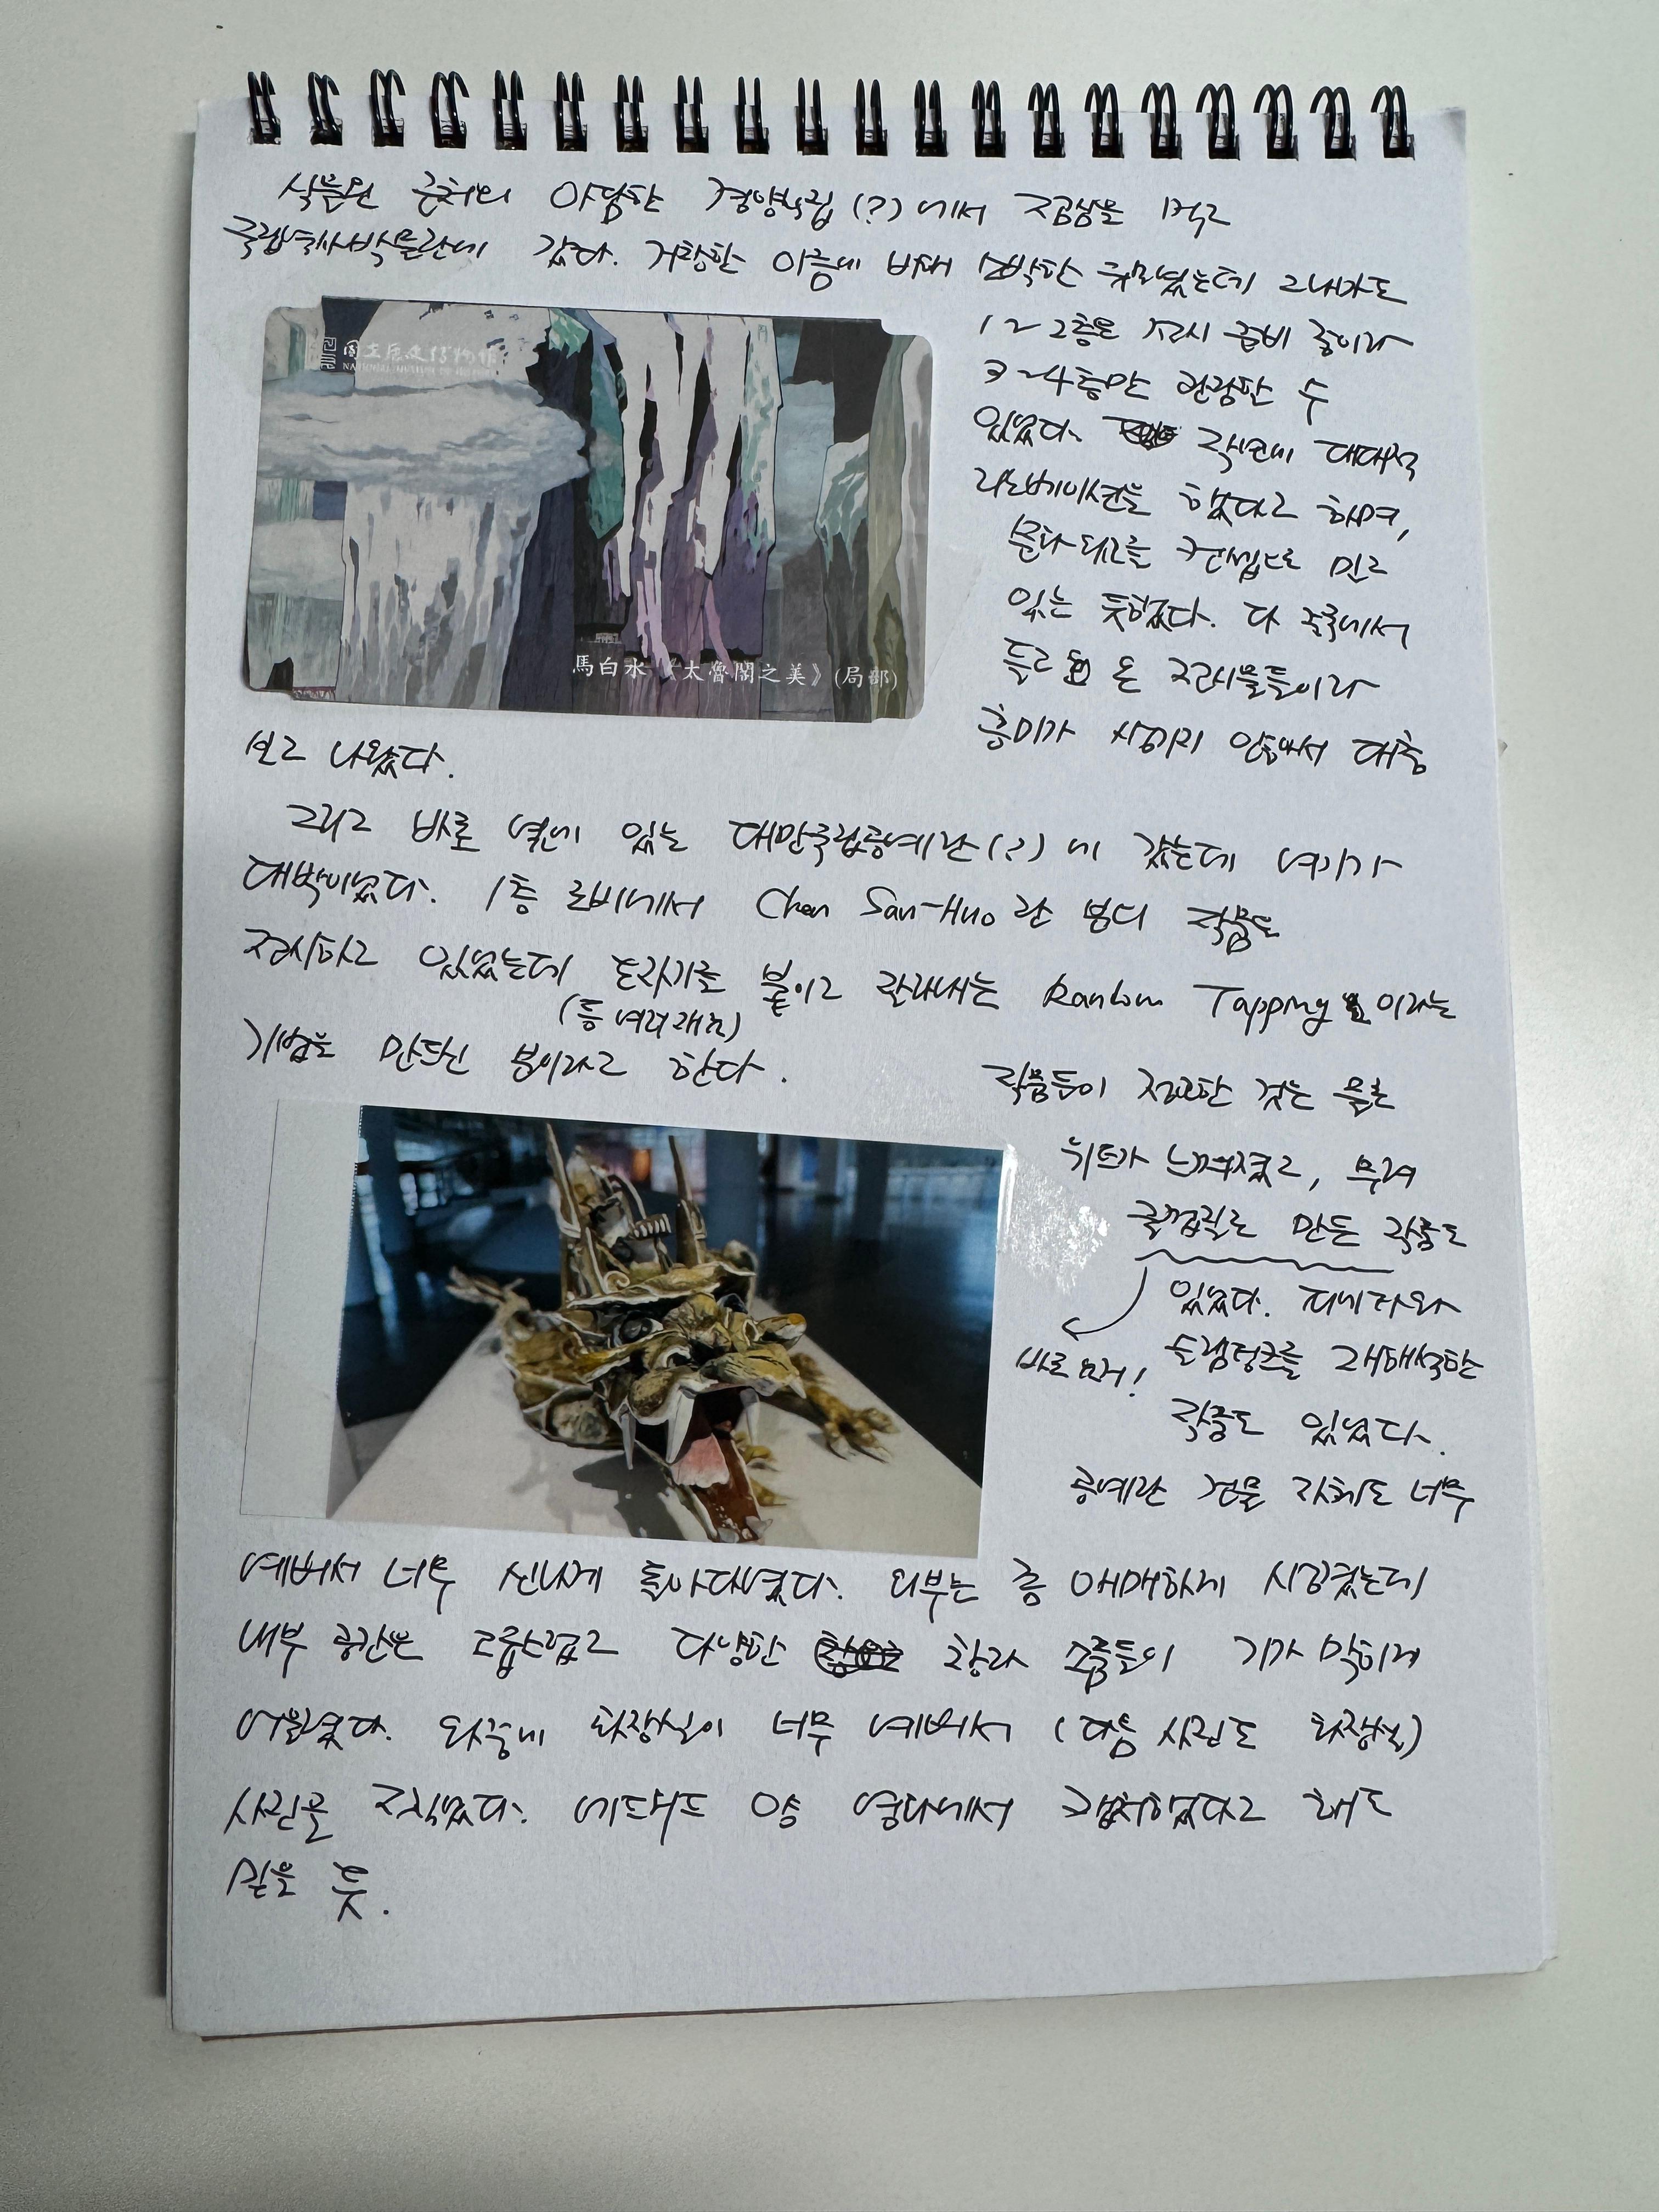 식물원 근처의 아담한 경양식집(?)에서 점심을 먹고
국립역사박물관에 갔다. 거창한 이름에 비해 소박한 규모였는데 그나마도
國立歷史博物館
NATIONAL MUSEUM OF HISTORY
馬白水《太魯閣之美》(局部)
1~2층은 전시 준비 중이라
3~4층만 관람할 수
있었다. 작년에 대대적
리노베이션을 했다고 하며,
문화외교를 컨셉으로 밀고
있는 듯하였다. 다 중국에서
들고 온 전시물들이라
흥미가 생기지 않아서 대충
보고 나왔다.
그리고 바로 옆에 있는 대만국립공예관(?)에 갔는데 여기가
대박이었다. 1층 로비에서 Chen San-Huo란 분의 작품을
전시하고 있었는데 돋자기를 붙이고 갈아내는 Random Tapping이라는
(등 여러 재료)
기법을 만드신 분이라고 한다.
작품들이 정교한 것는 물론
위트가 느껴졌고, 무려
굴껍질로 만든 작품도
있었다. 피에타와
바로 요거!
트럼펑크를 재해석한
작품도 있었다.
공예관 건물 자체도 너무
예뻐서 너무 신나게 돌아다녔다. 외부는 좀 애매하게 생겼는데
내부 공간은 고급스럽고 다양한 창과 소품들이 기가 막히게
어울렸다. 와중에 화장실이 너무 예뻐서 (다음 사진도 화장실)
사진을 찍었다. 에드워드 양 영화에서 캡처했었다고 해도
믿을 듯.